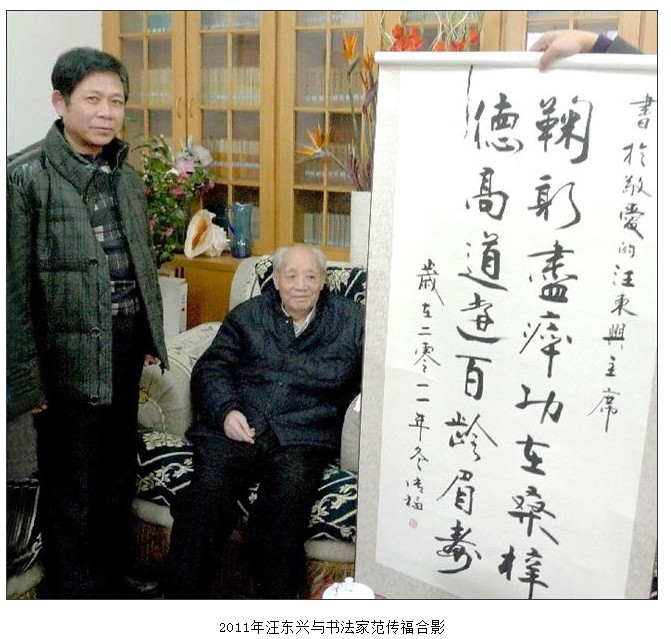 書於敬愛的汪東興主席
鞠躬盡瘁功在桑梓
德高道遠百龄眉壽
歲在二零一一年冬傳福
2011年汪东兴与书法家范传福合影